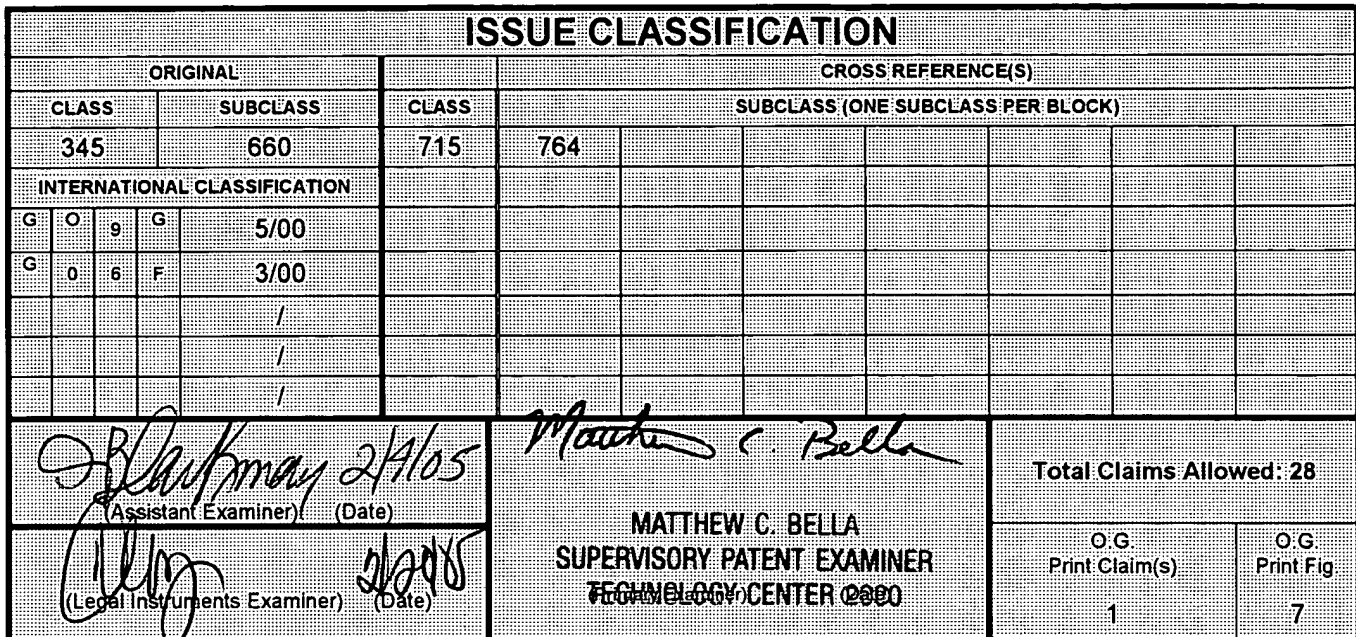 ISSUE CLASSIFICATION
ORIGINAL CROSS REFERENCE(S)
CLASS SUBCLASS CLASS SUBCLASS (ONE SUBCLASS PER BLOCK)
345 660 715 764
INTERNATIONAL CLASSIFICATION
G O 9 G 5/00
G 0 6 F 3/00
/
/
/
2/4/05
(Assistant Examiner) (Date)
(Legal Instruments Examiner) (Date)
Matthew C. Bella
MATTHEW C. BELLA
SUPERVISORY PATENT EXAMINER
TECHNOLOGY CENTER
Total Claims Allowed: 28
O.G.
Print Claim(s)
1
O.G.
Print Fig.
7